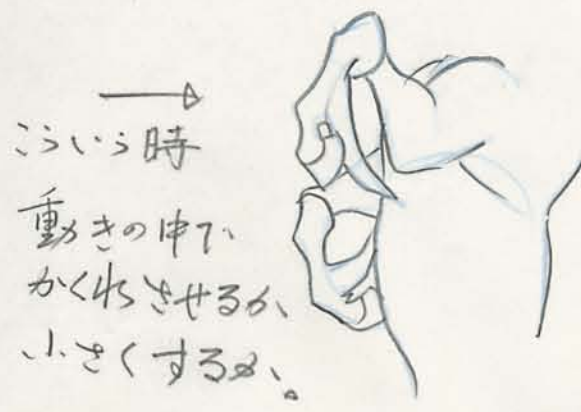 こういう時
動きの中で
かくれさせるか、
小さくするか。